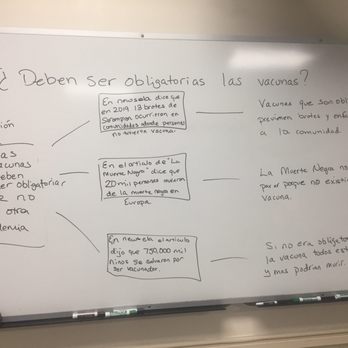 ¿ Deben ser obligatorias las vacunas?
En newsela dice que
en 2019 13 brotes de
Sarampion ocurrieron en
comunidades donde personas
no tuvieron vacuna.
Vacunas que son obl
previenen brotes y enf
a la comunidad.
ión
as
acunas
eben
er obligatoriar
e no
otra
dencia
En el articulo de "La
Muerte Negra" dice que
20 mil personas
de la muerte negra en
Europa.
La Muerte Negra no
par ar porque no existic
vacuna.
En newsela el articulo
dijo que 750,000 mil
niños se salvaron por
ser vacunados.
Si no era obligato
la vacuna todos est
y mas podrian murir.